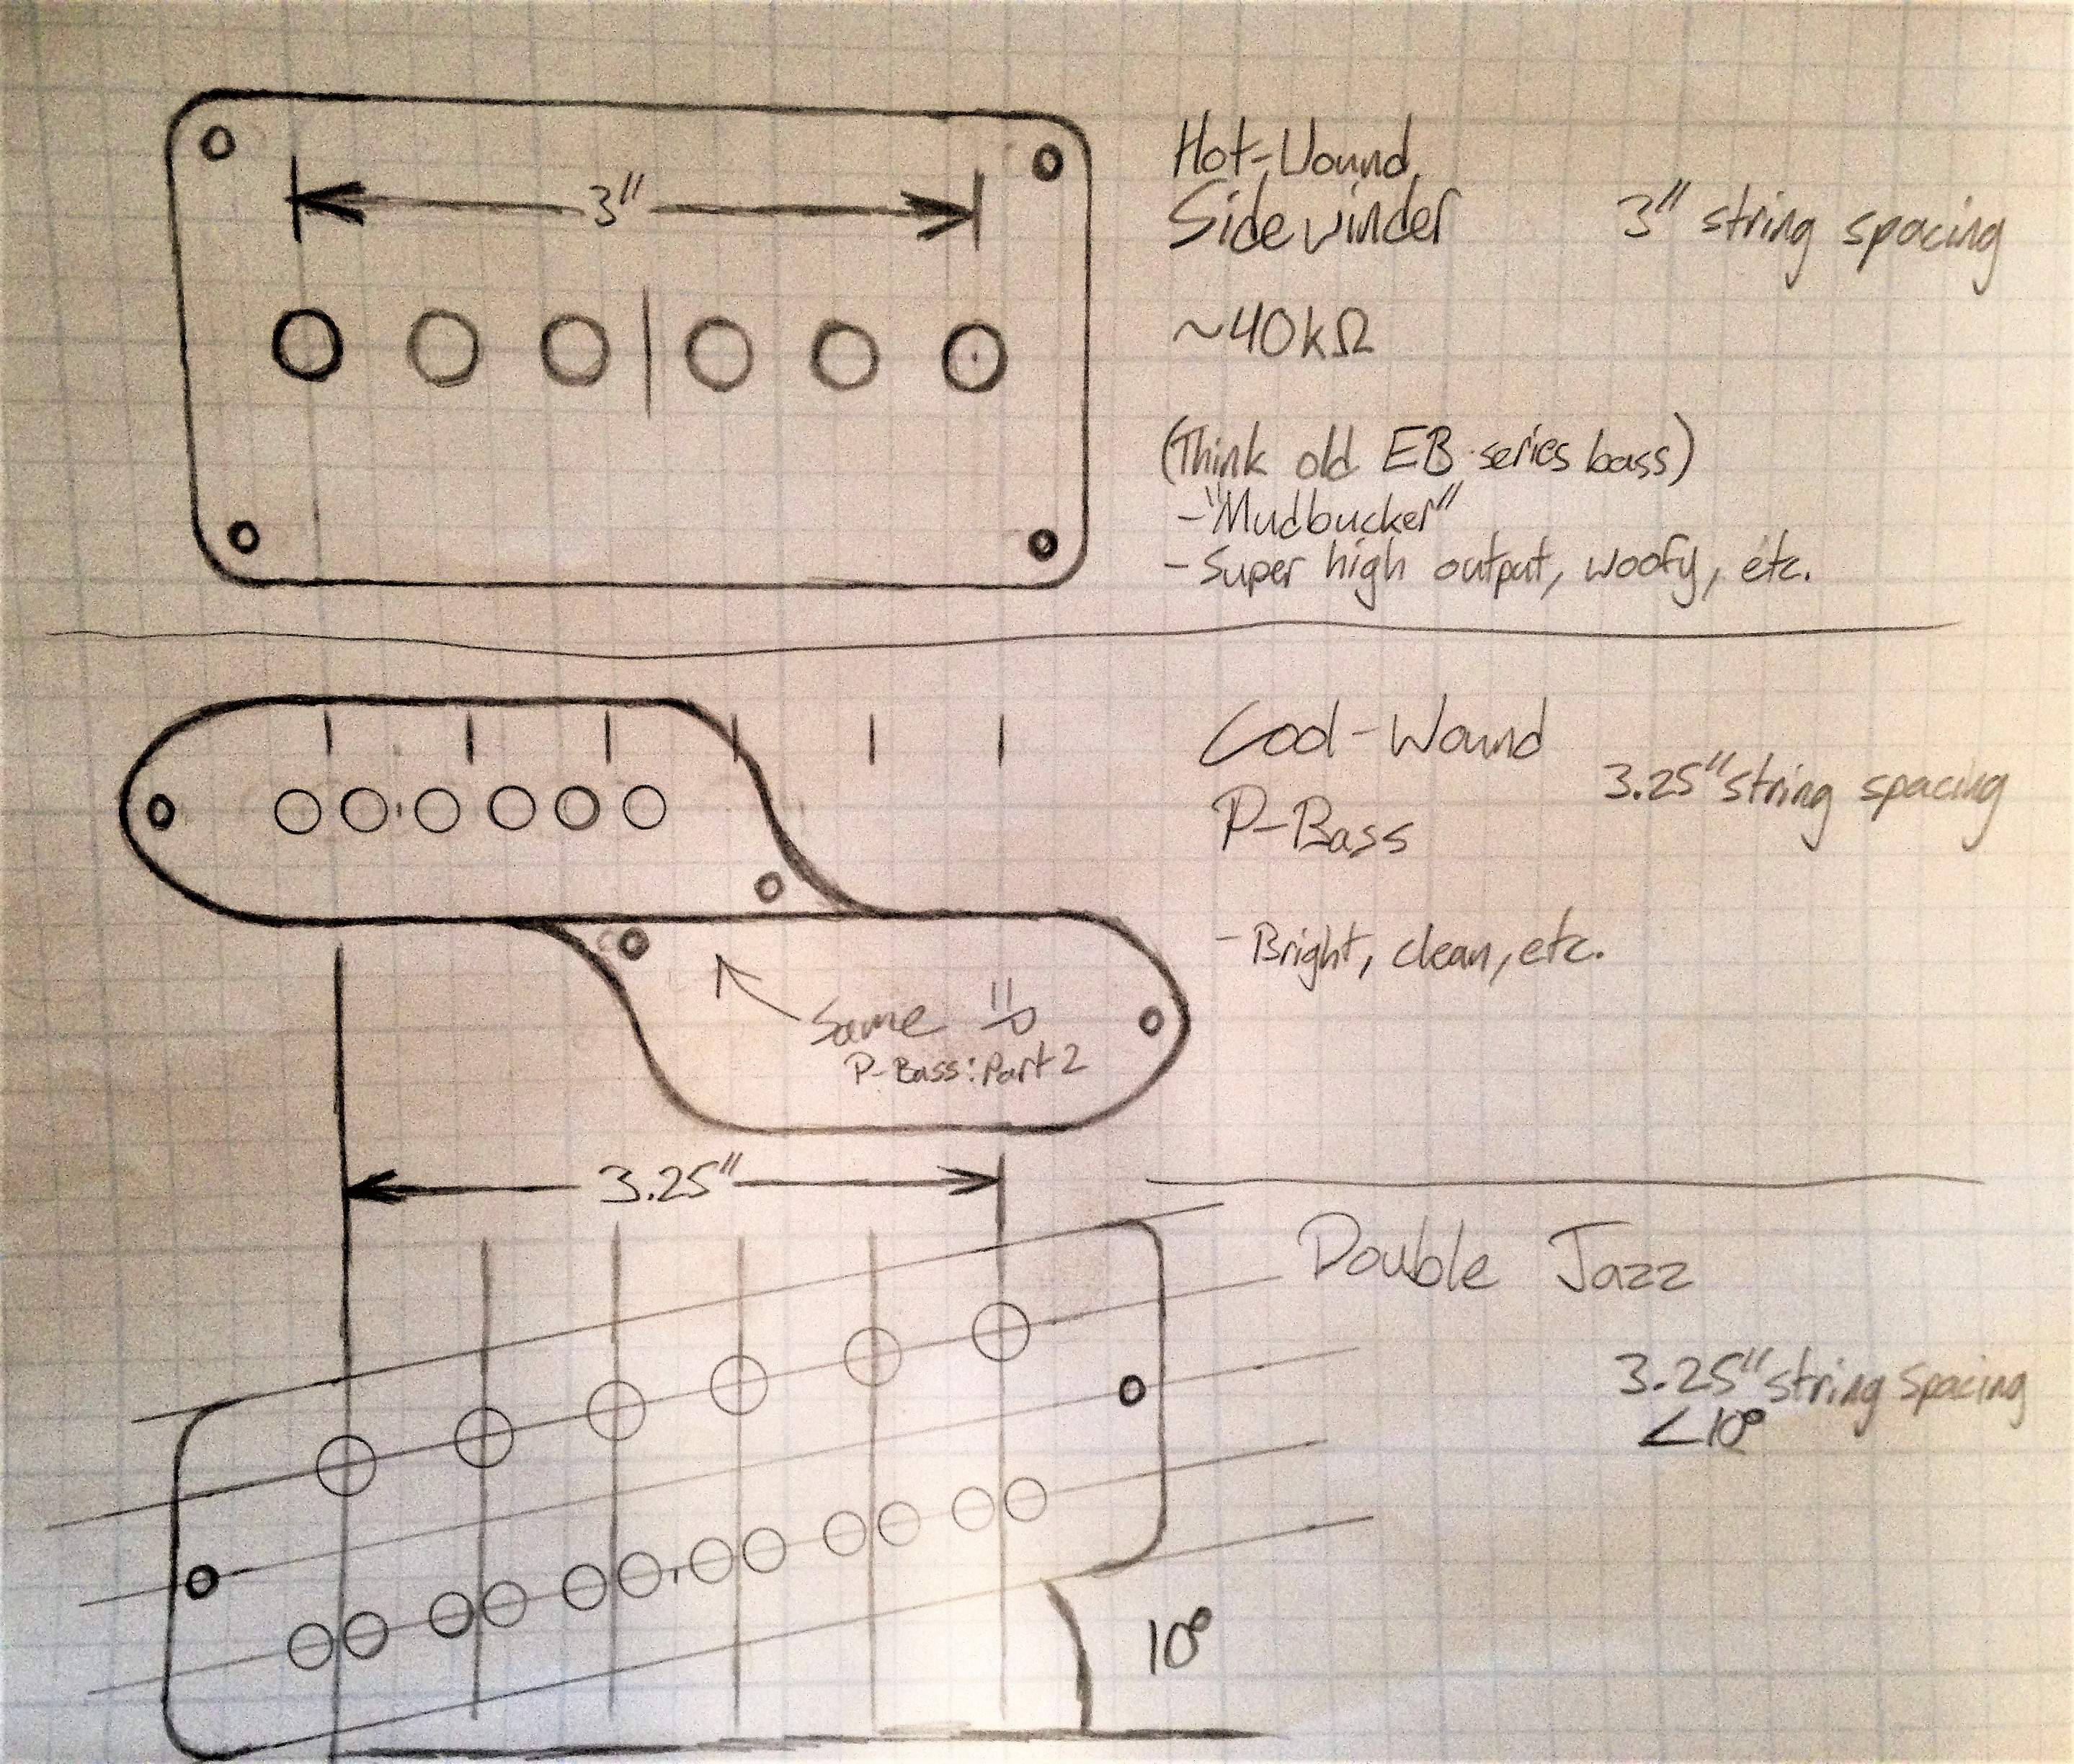 3"
Hot-Wound
Sidewinder
3" string spacing
~40kΩ
(Think old EB series bass)
-"Mudbucker"
- Super high output, woofy, etc.
Cool-Wound
P-Bass
3.25" string spacing
- Bright, clean, etc.
Same
P-Bass: Part 2
3.25"
Double Jazz
3.25" string spacing
<10°
10°